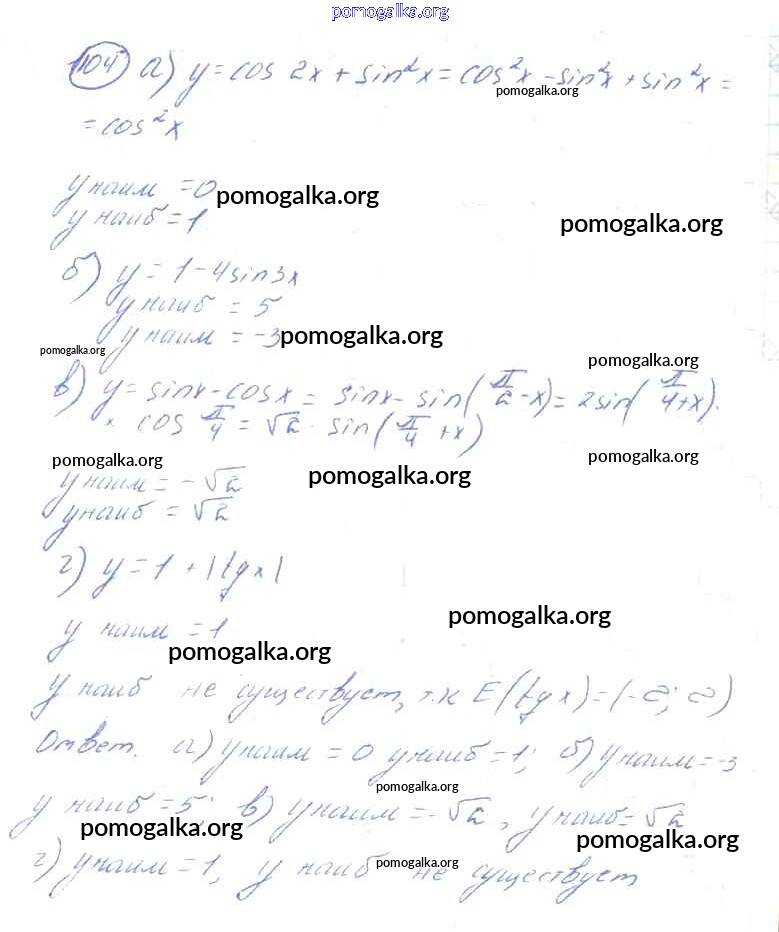 pomogalka.org
104 а) y = cos 2x + sin²x = cos²x - sin²x + sin²x =
pomogalka.org
= cos²x
y наим = 0 pomogalka.org
y наиб = 1 pomogalka.org
б) y = 1 - 4sin3x
y наиб = 5
y наим = -3 pomogalka.org
pomogalka.org pomogalka.org
в) y = sinx - cosx = sinx - sin(π/2 - x) = 2sin(π/4 + x) ·
× cos π/4 = √2 · sin(π/4 + x)
pomogalka.org pomogalka.org
y наим = -√2 pomogalka.org
y наиб = √2
г) y = 1 + |tgx|
pomogalka.org
y наим = 1
pomogalka.org
y наиб не существует, т.к E(tgx) = (-∞; ∞)
Ответ. а) y наим = 0 y наиб = 1; б) y наим = -3
pomogalka.org
y наиб = 5; в) y наим = -√2, y наиб = √2
pomogalka.org pomogalka.org
г) y наим = 1, y наиб не существует
pomogalka.org